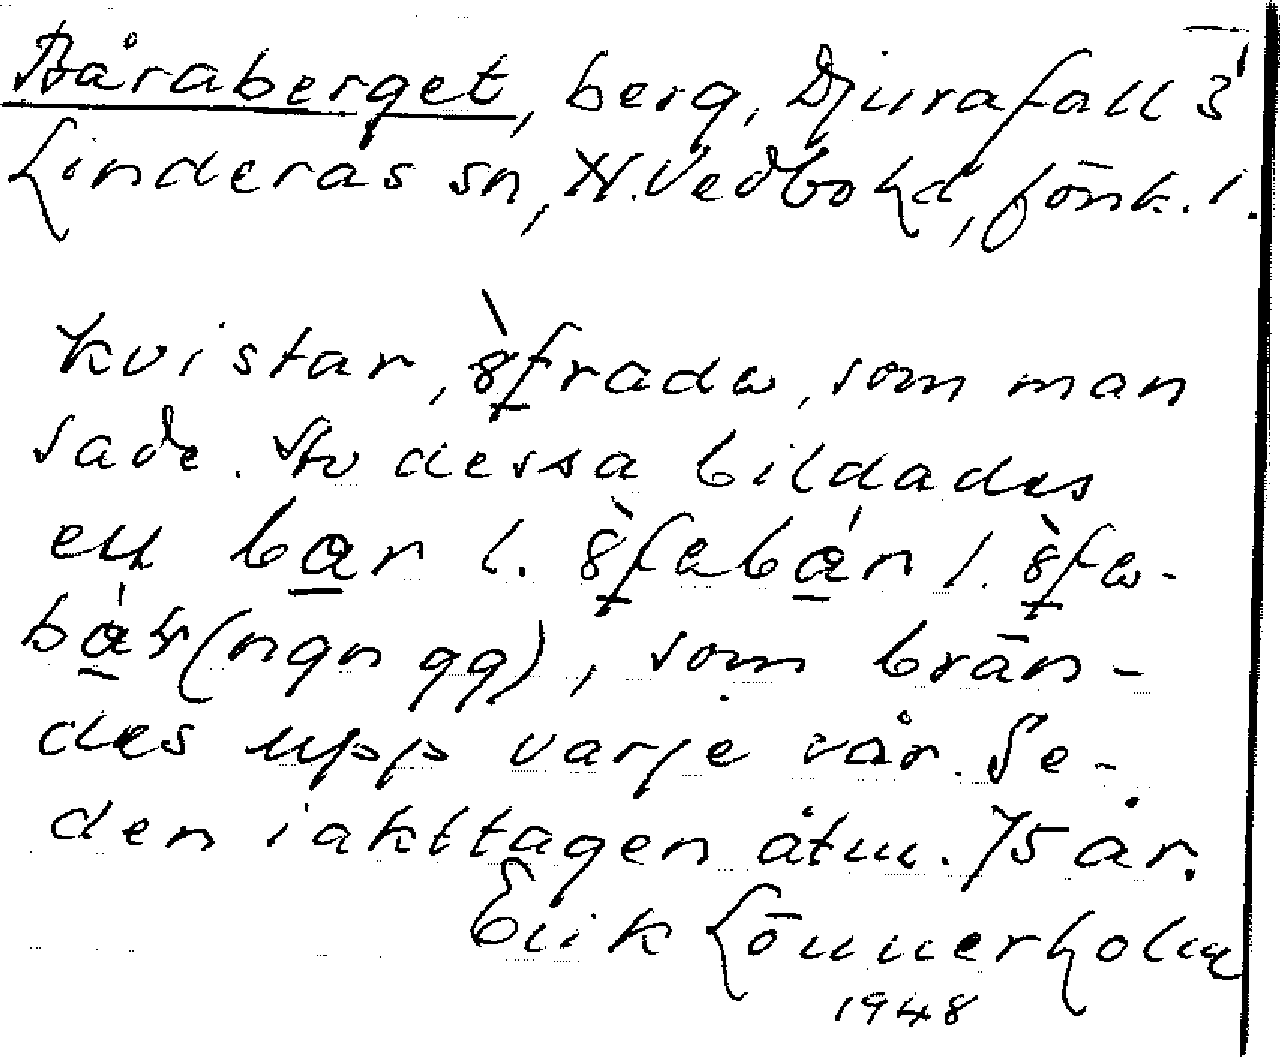 Båraberget, berg, Djurafall 3
Linderås sn, N. Vedbo hd, Jönk. l.
kvistar, som man
sade. Av dessa bildades
ett l. l.
(ngn gg), som brän-
des upp varje vår. Se-
den iakttagen åtm. 75 år.
Erik Lönnerholm
1948